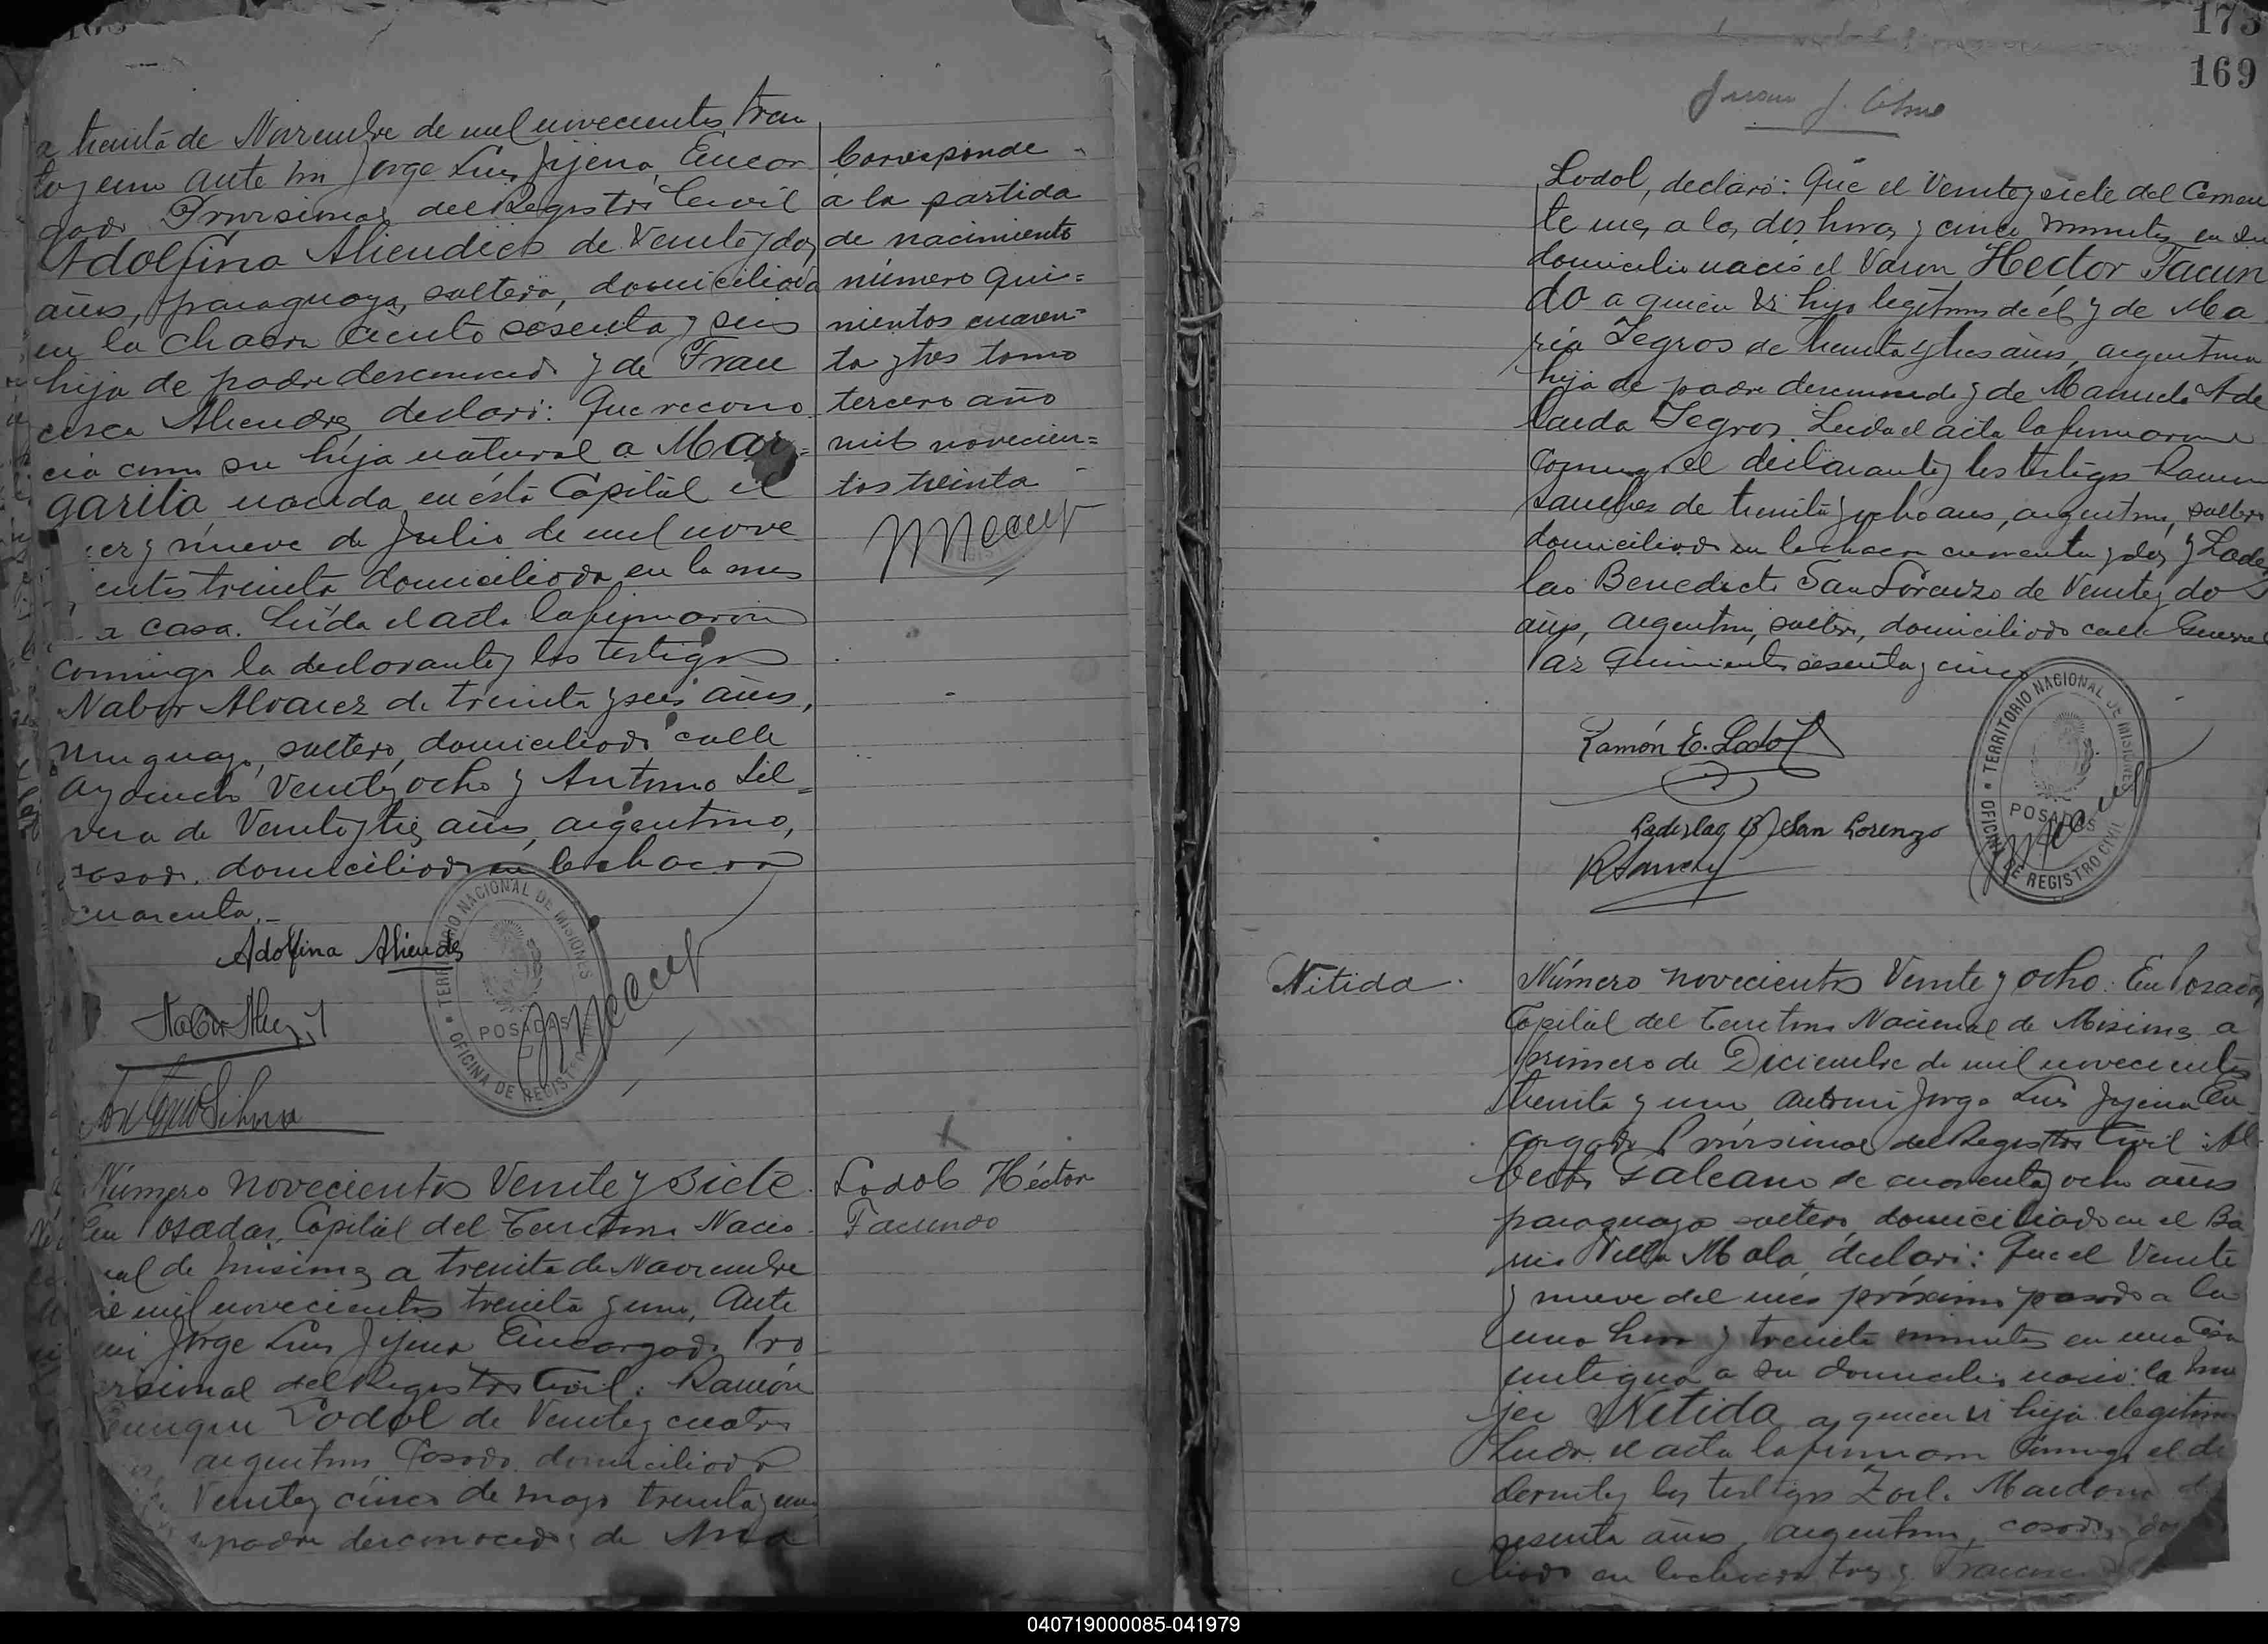 a treinta de Noviembre de mil novecientos trein
ta y uno ante mi Jorge Luis Jijena, Encar
gado Provisional del Registro Civil
Adolfina Aliendres de Veinte y dos
años, paraguaya, soltera, domiciliada
en la chacra ciento sesenta y seis
hija de padre desconocido y de Fran
cisca Aliendres declaró: Que recono
cia como su hija natural a Mar=
garita nacida en ésta Capital el
ez y nueve de Julio de mil nove
entos treinta domiciliada en la mis
a casa. Leida el acta la firmaron
conmigo la declarante y los testigos
Nabor Alvarez de treinta y seis años,
uruguayo, soltero, domiciliado calle
Ayacucho Veinte y ocho y Antonio Sil=
vera de Veinte y tres años, argentino,
casado, domiciliado en la chacra
cuarenta.-
Corresponde
a la partida
de nacimiento
número qui=
nientos cuaren=
ta y tres tomo
tercero año
mil novecien=
tos treinta
Adolfina Aliendes
TERRITORIO NACIONAL DE MISIONES
POSADAS
OFICINA DE REGISTRO CIVIL
Antonio Silvera
Número novecientos Veinte y siete.
En Posadas, Capital del Territorio Nacio
nal de Misiones a treinta de Noviembre
de mil novecientos treinta y uno, Ante
mi Jorge Luis Jijena Encargado Pro
visional del Registro Civil: Ramón
Enrique Lodol de Veinte y cuatro
argentino casado domiciliado
Veinte y cinco de mayo treinta y uno
padre desconocido y de Ana
Lodol Héctor
Facundo
173
169
Juan J.
Lodol, declaró: Que el Veinte y siete del corrien
te mes, a las dos horas y cinco minutos en su
domicilio nació el Varon Héctor Facun
do a quien es hijo legítimo de él y de Ma
ría Segros de treinta y tres años, argentina
hija de padre desconocido y de Manuela Ade
laida Segros. Leida el acta la firmaron
conmigo el declarante y los testigos Ramon
Sanchez de treinta y ocho años, argentino, soltero
domiciliado en la chacra cuarenta y dos y Ladis
lao Benedicto San Lorenzo de Veinte y dos
años, argentino, soltero, domiciliado calle
quinientos sesenta y cinco
Ramón E. Lodol
Ladislao B. San Lorenzo
RSanchez
TERRITORIO NACIONAL DE MISIONES
POSADAS
OFICINA DE REGISTRO CIVIL
Nitida.
Número novecientos Veinte y ocho. En Posadas,
Capital del Territorio Nacional de Misiones a
primero de Diciembre de mil novecientos
treinta y uno, Ante mi Jorge Luis Jijena En
cargado Provisional del Registro Civil: Al
berto Galeano de cuarenta y ocho años
paraguayo soltero, domiciliado en el Ba
rrio Villa Mola, declaró: Que el Veinte
y nueve del mes próximo pasado a la
una hora y treinta minutos en una casa
contigua a su domicilio nació: la mu
jer Nitida a quien es hija ilegitima
Leida el acta la firmaron conmigo el de
clarante y los testigos Zoilo Maidana de
sesenta años, argentino, casado, do
liado en la chacra tres y
040719000085-041979